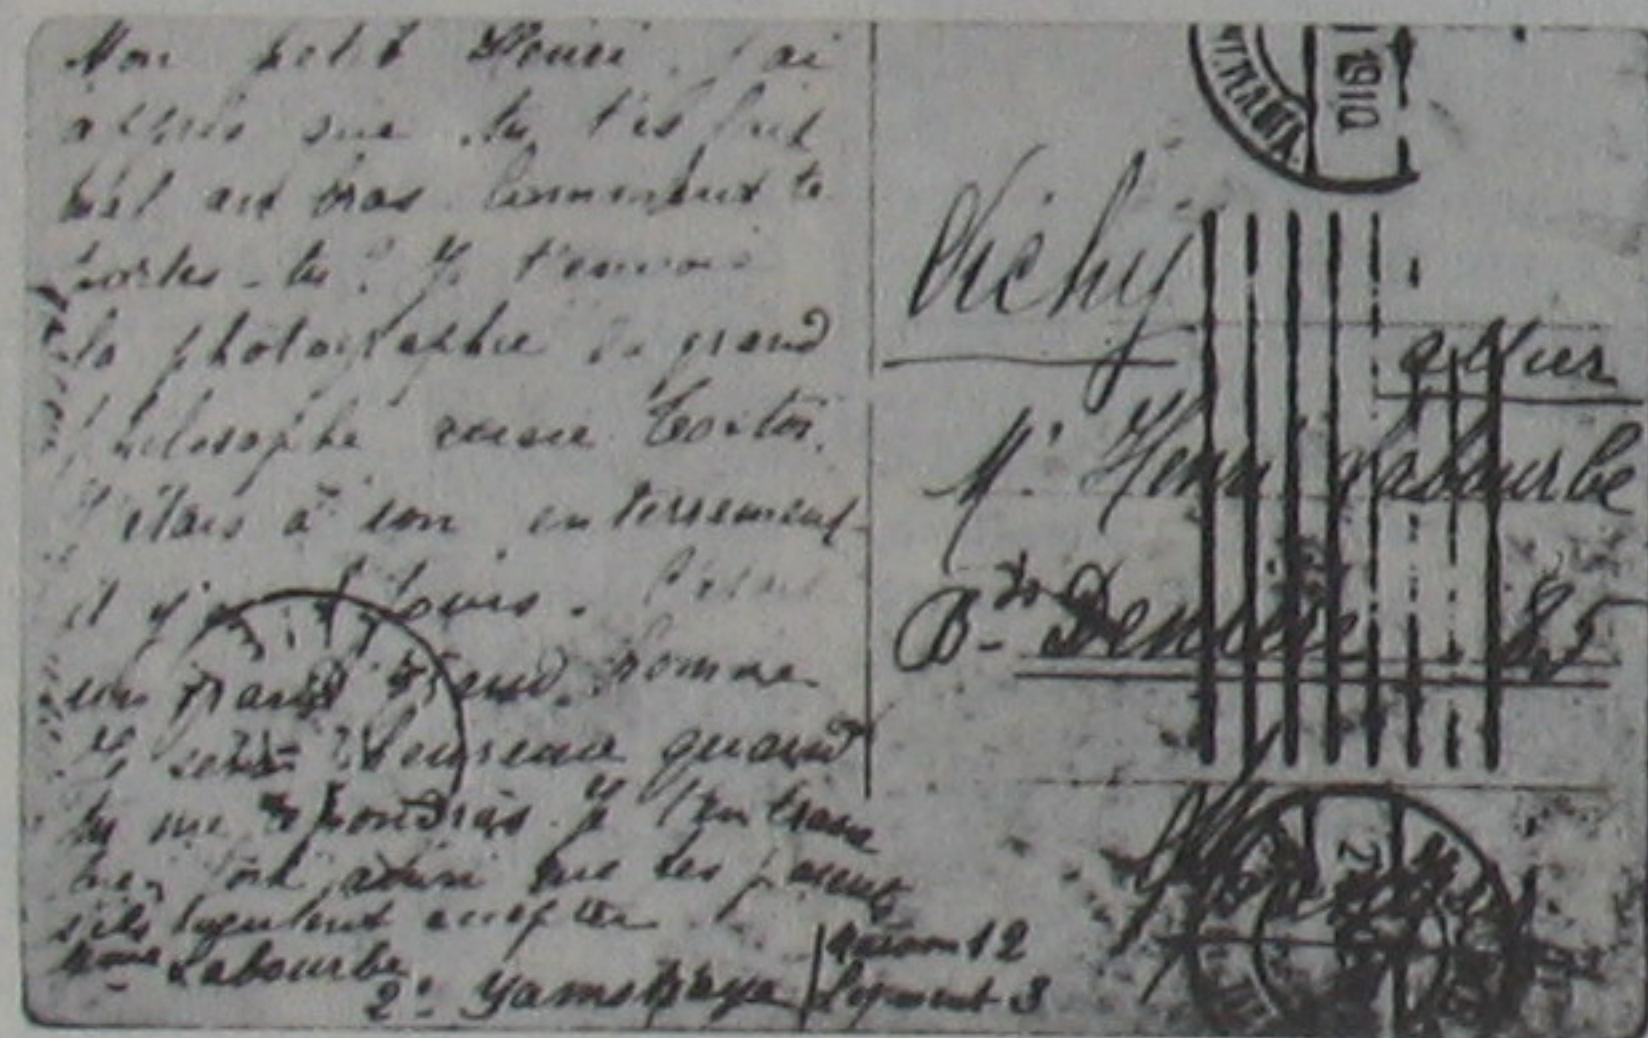 Mon petit Henri, j'ai
appris que tu t'es fait
mal au bras. Comment te
portes-tu? Je t'envoie
la photographie du grand
philosophe russe Tostoi.
J'étais à son enterrement
il y a jours. C'était
un grand grand homme
Je serai heureux quand
tu me répondras. Je t'embrasse
bien fort ainsi que tes parents
s'ils veulent accepter
Mme Labourbe
2e Yamskaya
Maison 12
Logement 3
1910
Vichy
Allier
Mr Henri Labourbe
Bd Denière 85